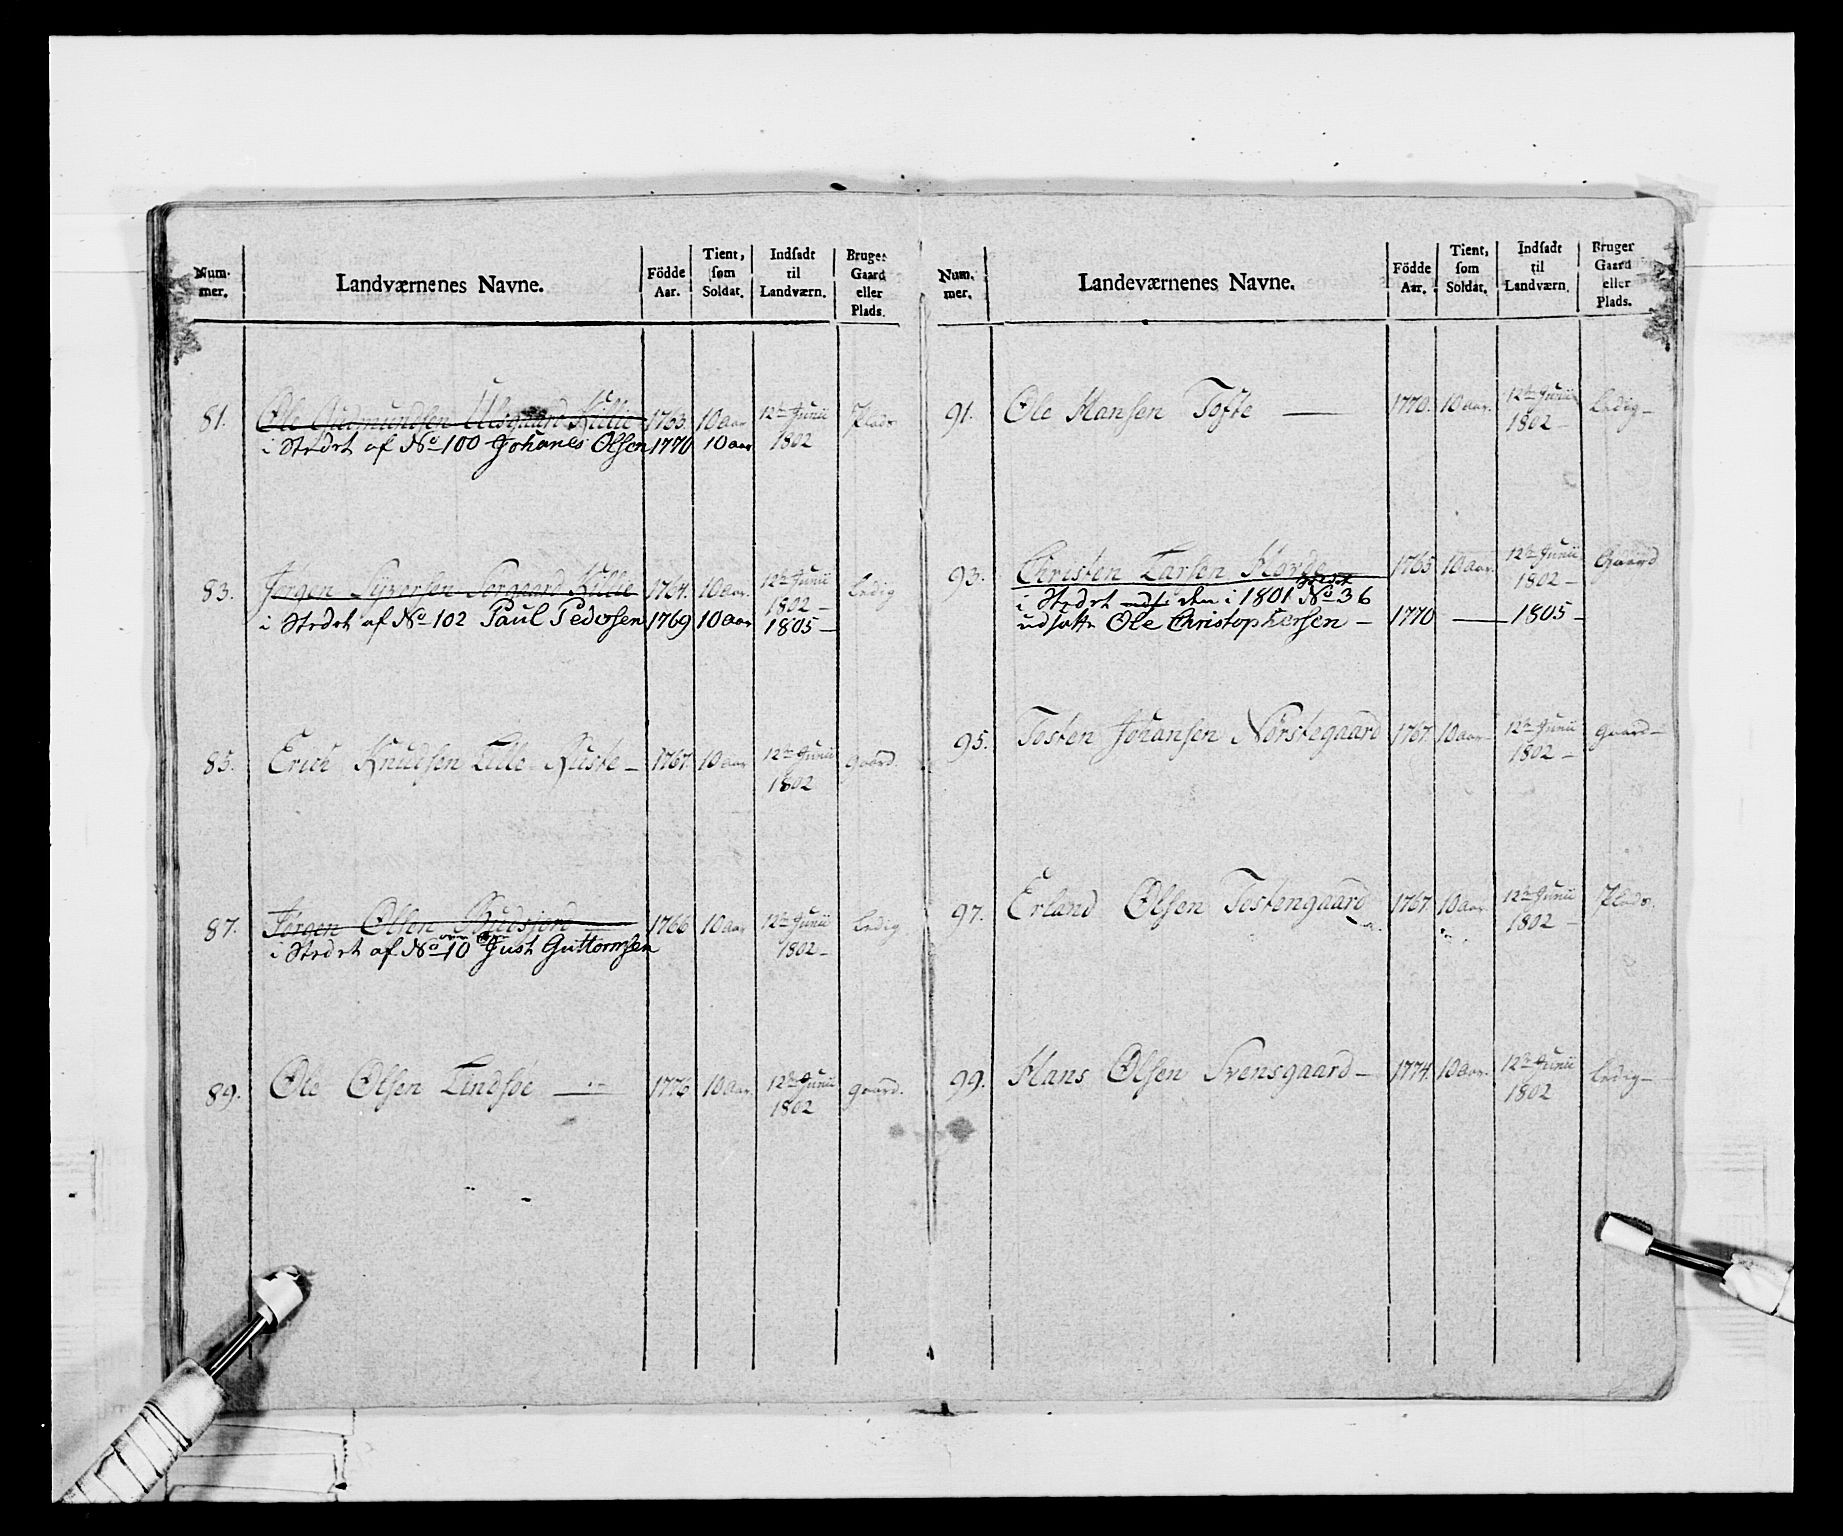 Num-
mer.
Landværnenes Navne.
Födde
Aar.
Tient,
som
Soldat.
Indsadt
til
Landværn.
Bruger
Gaard
eller
Plads.
81. Ole Gudmundsen Ulsgaard Kullie 1763. 10 aar 12te Junii 1802 Plads
i Stedet af No 100 Johanes Olsen 1770 10 aar
83. Jørgen Syversen Sorgaard Kullie 1764. 10 aar. 12te Junii 1802 – Ledig
i Stedet af No 102 Paul Pedersen 1769 10 aar 1805 –
85. Erich Knudsen Lille Ruste – 1767. 10 aar 12te Junii 1802 gaard.
87. Jørgen Olsen 1766 10 aar 12te Junii 1802 – Ledig
i Stedet af No 10 Just Guttormsen
89. Ole Olsen Lindsøe 1776 10 aar. 12te Junii 1802 gaard.
Num.
mer.
Landeværnenes Navne.
Födde
Aar.
Tient,
som
Soldat.
Indsadt
til
Landværn.
Bruger
Gaard
eller
Plads.
91. Ole Hansen Tofte — 1770. 10 aar. 12te Junii 1802 – Ledig –
93. Christen Larsen 1765 10 aar. 12te Junii 1802 – Gaard
i Stedet den i 1801 No 36
udsatte Ole Christophersen – 1770 — 1805 –
95. Tosten Johansen Norstegaard 1767. 10 aar 12te Junii 1802 – gaard –
97. Erland Olsen Tostengaard 1767 10 aar 12te Junii 1802 – Plads.
99. Hans Olsen Svensgaard – 1774. 10 aar. 12te Junii 1802 Ledig –